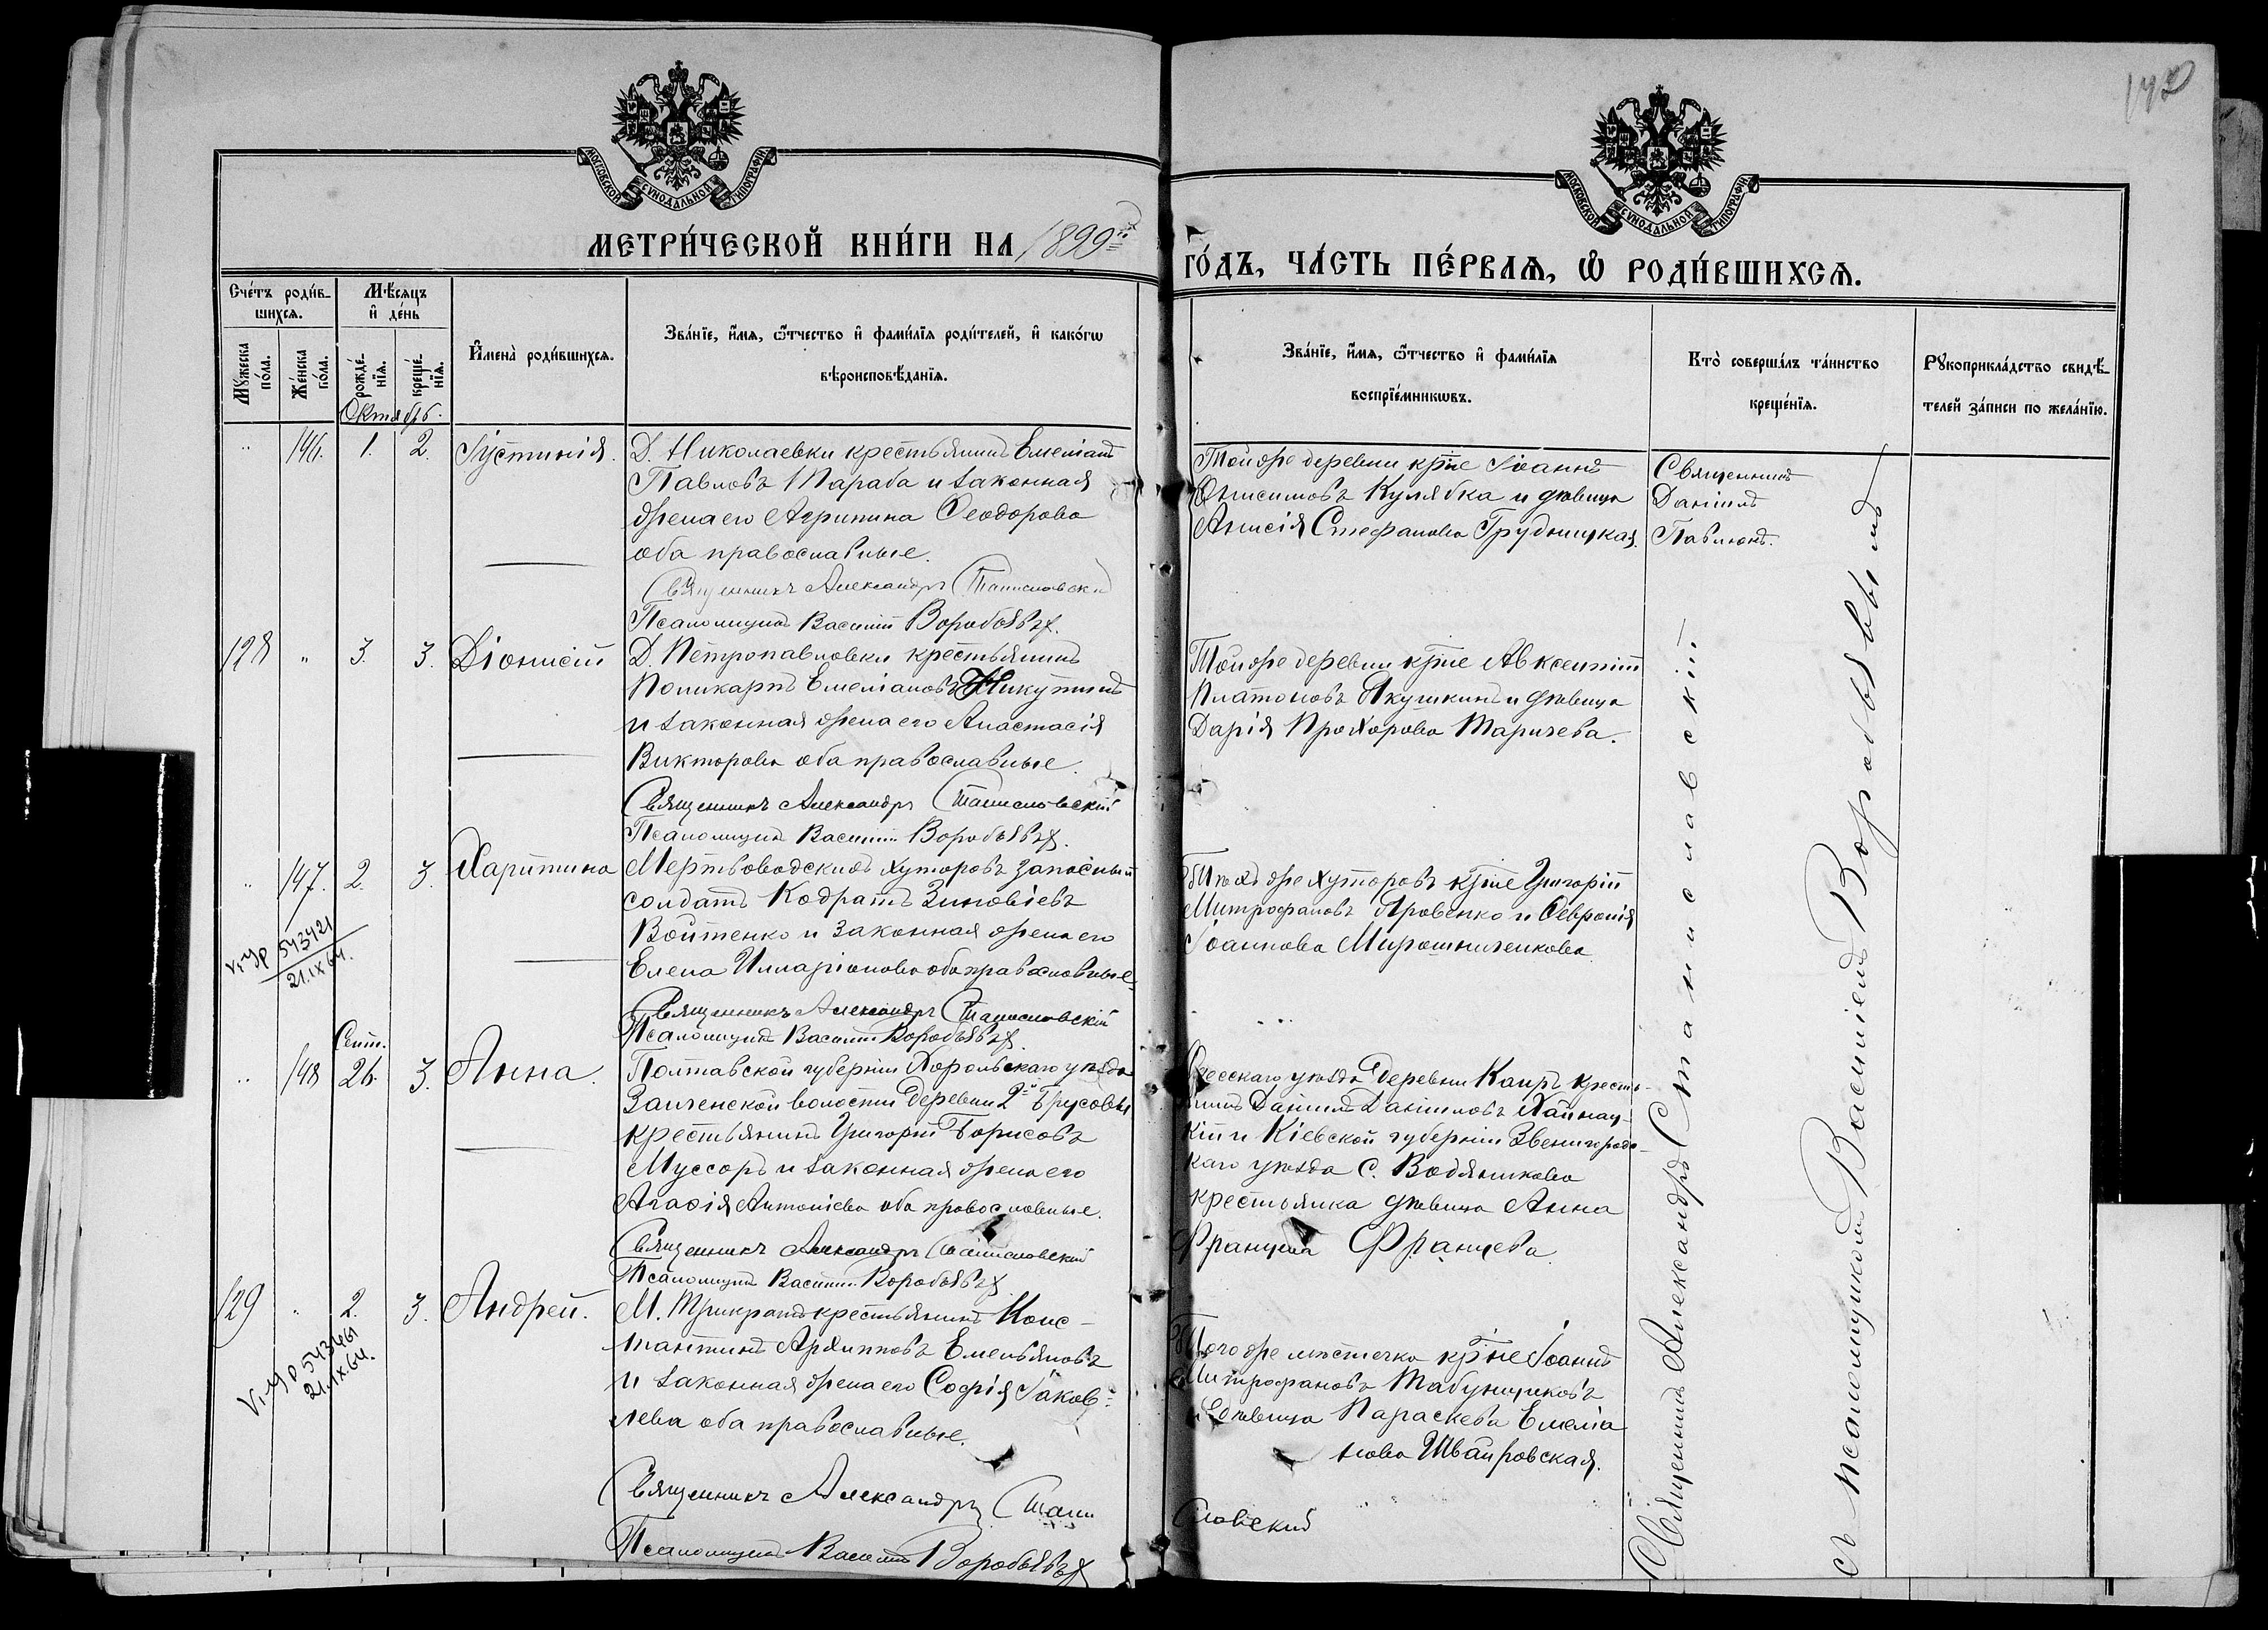 142
МОСКОВСКОЙ СѴНОДАЛЬНОЙ ТИПОГРАФІИ
МОСКОВСКОЙ СѴНОДАЛЬНОЙ ТИПОГРАФІИ
МЕТРИ́ЧЕСКОЙ КНИ́ГИ НА 1899й ГО́ДЪ, ЧА́СТЬ ПЕ́РВАѦ, Ѡ҆ РОДИ́ВШИХСѦ.
Сче́тъ роди́в-
шихсѧ.
Мꙋ́жеска
по́ла.
Же́нска
по́ла.
Мѣ́сѧцъ
и҆ де́нь
рожде́-
нїѧ.
креще́-
нїѧ.
Октябрь.
И҆мена̀ роди́вшихсѧ.
Зва́нїе, и҆́мѧ, ѻ҆́тчество и҆ фами́лїѧ роди́телей, и҆ како́гѡ
вѣроисповѣ́данїѧ.
Зва́нїе, и҆́мѧ, ѻ҆́тчество и҆ фами́лїѧ
воспрїе́мникѡвъ.
Кто̀ соверша́лъ та́инство
креще́нїѧ.
Рꙋкоприкла́дство свидѣ́-
телей за́писи по жела́нїю.
" 146. 1. 2. Іустинія.
Д. Николаевки крестьянинъ Емеліанъ
Павловъ Параба и законная
жена его Агрипина Ѳеодорова
оба православные.
Священникъ Александръ Станиславскій
Псаломщикъ Василій Воробьевъ.
Той же деревни кр̃не Іоаннъ
Онисимовъ Кулябка и дѣвица
Анисія Стефанова Грудницкая.
Священникъ
Даніилъ
Павлюкъ.
128 " 3. 3. Діонисій
Д. Петропавловки крестьянинъ
Поликарпъ Емеліановъ Никутинъ
и законная жена его Анастасія
Викторова оба православные.
Священникъ Александръ Станиславскій
Псаломщикъ Василій Воробьевъ.
Той же деревни кр̃не Авксентій
Платоновъ Якушкинъ и дѣвица
Дарія Прохорова Таричева.
" 147. 2. 3. Харитина
543421
21.IX 64.
Мертвоводскихъ хуторовъ запасный
солдатъ Кодратъ Зиновіевъ
Войтенко и законная жена его
Елена Иларіонова оба православные.
Священникъ Александръ Станиславскій
Псаломщикъ Василій Воробьевъ.
Тѣхъ же хуторовъ кр̃не Григорій
Митрофановъ Яровенко и Ѳевронія
Іоаннова Мирошниченкова
Сент.
" 148 26. 3. Анна.
Полтавской губерніи Хорольскаго уѣзда
Заиченской волости деревни 2й Брусовы
крестьянинъ Григорій Борисовъ
Муссоръ и законная жена его
Агафія Антоніева оба православные.
Священникъ Александръ Станиславскій
Псаломщикъ Василій Воробьевъ
Одесскаго уѣзда деревни Каиръ кресть-
янинъ Даніилъ Даніиловъ Хайнац-
кій и Кіевской губерніи Звенигородс-
каго уѣзда с. Водяникова
крестьянка дѣвица Анна
Францева.
129 " 2. 3. Андрей.
543461
21.IX.64.
М. Трикратъ крестьянинъ Конс-
тантинъ Архипповъ Емельяновъ
и законная жена его Софія Іаков-
лева оба православные.
Священникъ Александръ Станиславский
Псаломщикъ Василій Воробьевъ
Того же мѣстечка кр̃не Іоаннъ
Митрофановъ Табунщиковъ
и дѣвица Параскева Емеліа
нова Швайровская.
Священникъ Александръ Станиславскій
съ псаломщикомъ Василіемъ Воробьевымъ